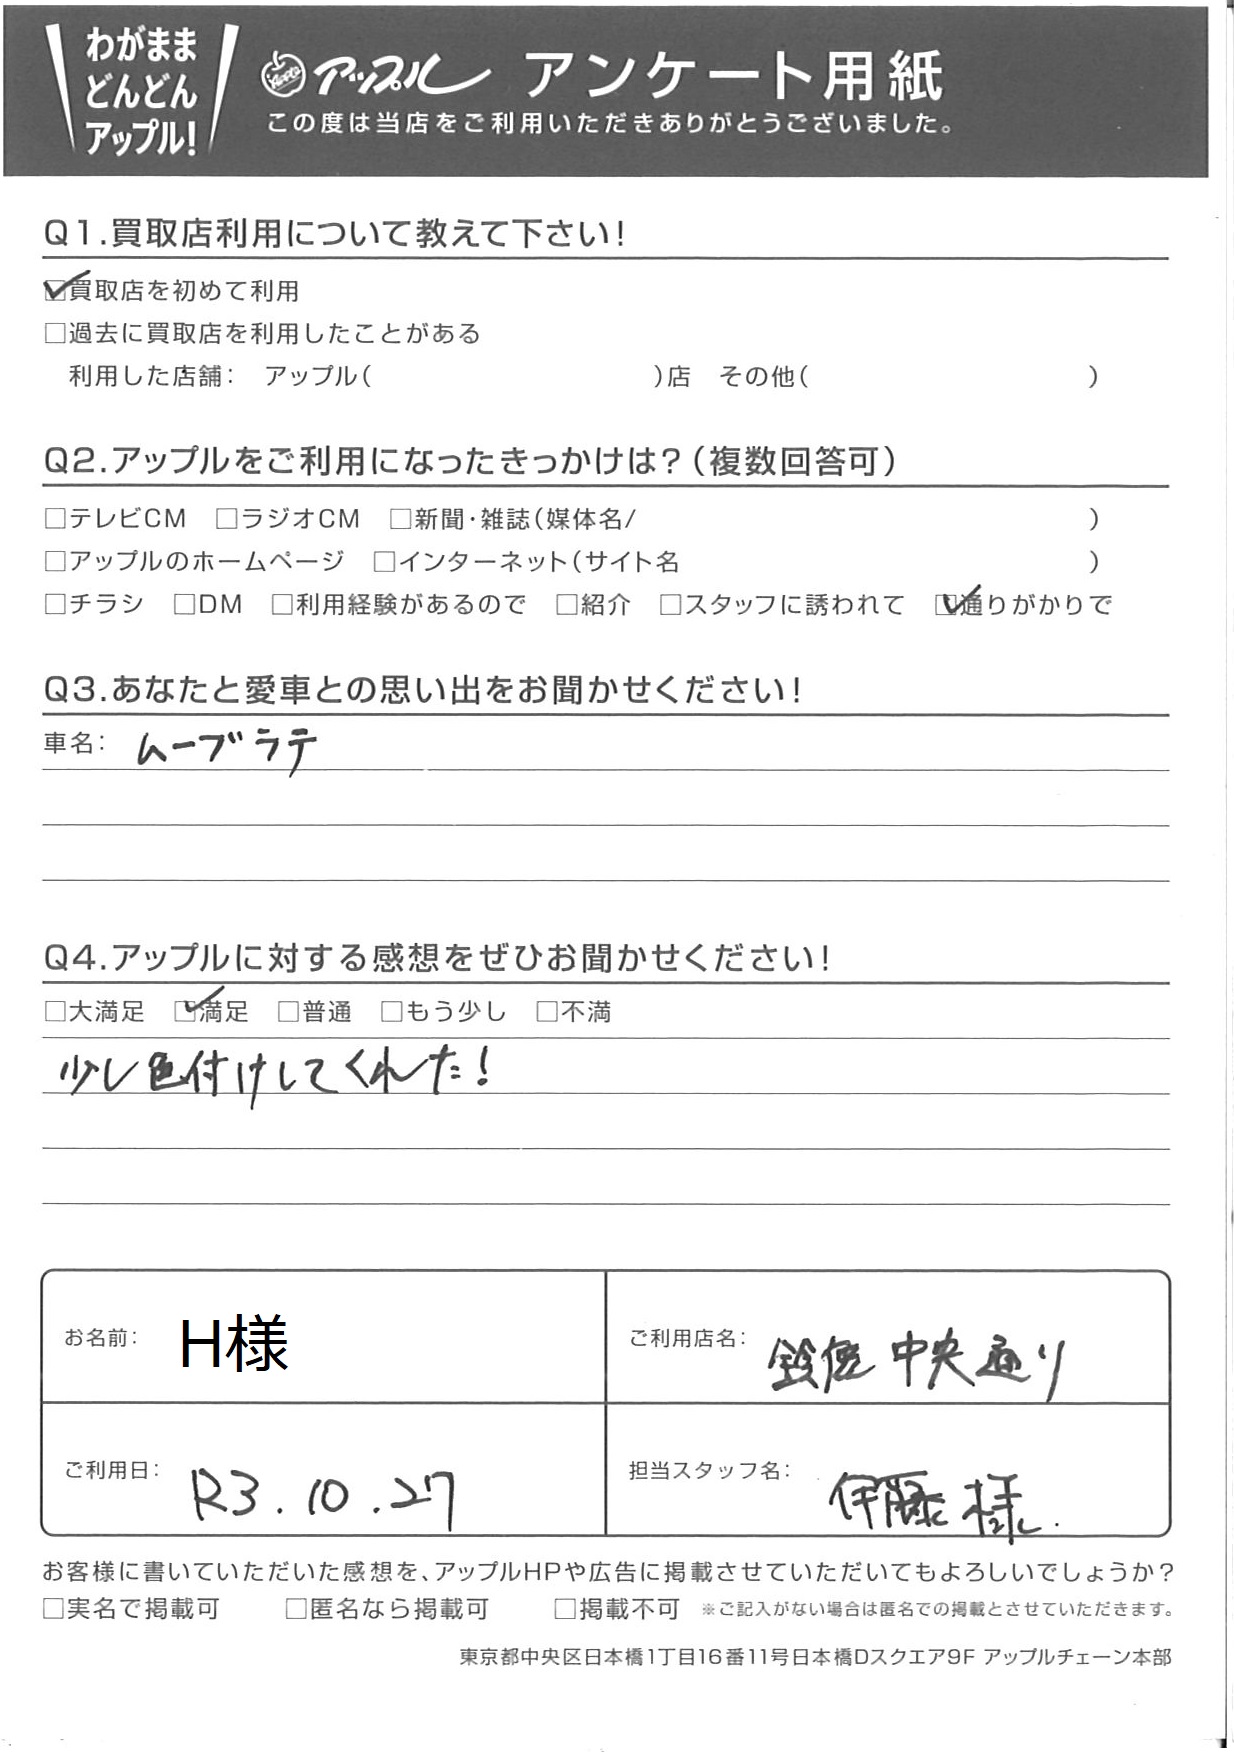 わがまま
どんどん
アップル!
アップル アンケート用紙
この度は当店をご利用いただきありがとうございました。
Q1.買取店利用について教えて下さい!
☑買取店を初めて利用
□過去に買取店を利用したことがある
利用した店舗: アップル( )店 その他( )
Q2.アップルをご利用になったきっかけは?(複数回答可)
□テレビCM □ラジオCM □新聞・雑誌(媒体名/ )
□アップルのホームページ □インターネット(サイト名 )
□チラシ □DM □利用経験があるので □紹介 □スタッフに誘われて ☑通りがかりで
Q3.あなたと愛車との思い出をお聞かせください!
車名: ムーブラテ
Q4.アップルに対する感想をぜひお聞かせください!
□大満足 ☑満足 □普通 □もう少し □不満
少し色付けしてくれた!
お名前: H様
ご利用店名: 鈴鹿中央通り
ご利用日: R3.10.27
担当スタッフ名: 伊藤様.
お客様に書いていただいた感想を、アップルHPや広告に掲載させていただいてもよろしいでしょうか?
□実名で掲載可 □匿名なら掲載可 □掲載不可 ※ご記入がない場合は匿名での掲載とさせていただきます。
東京都中央区日本橋1丁目16番11号日本橋Dスクエア9F アップルチェーン本部